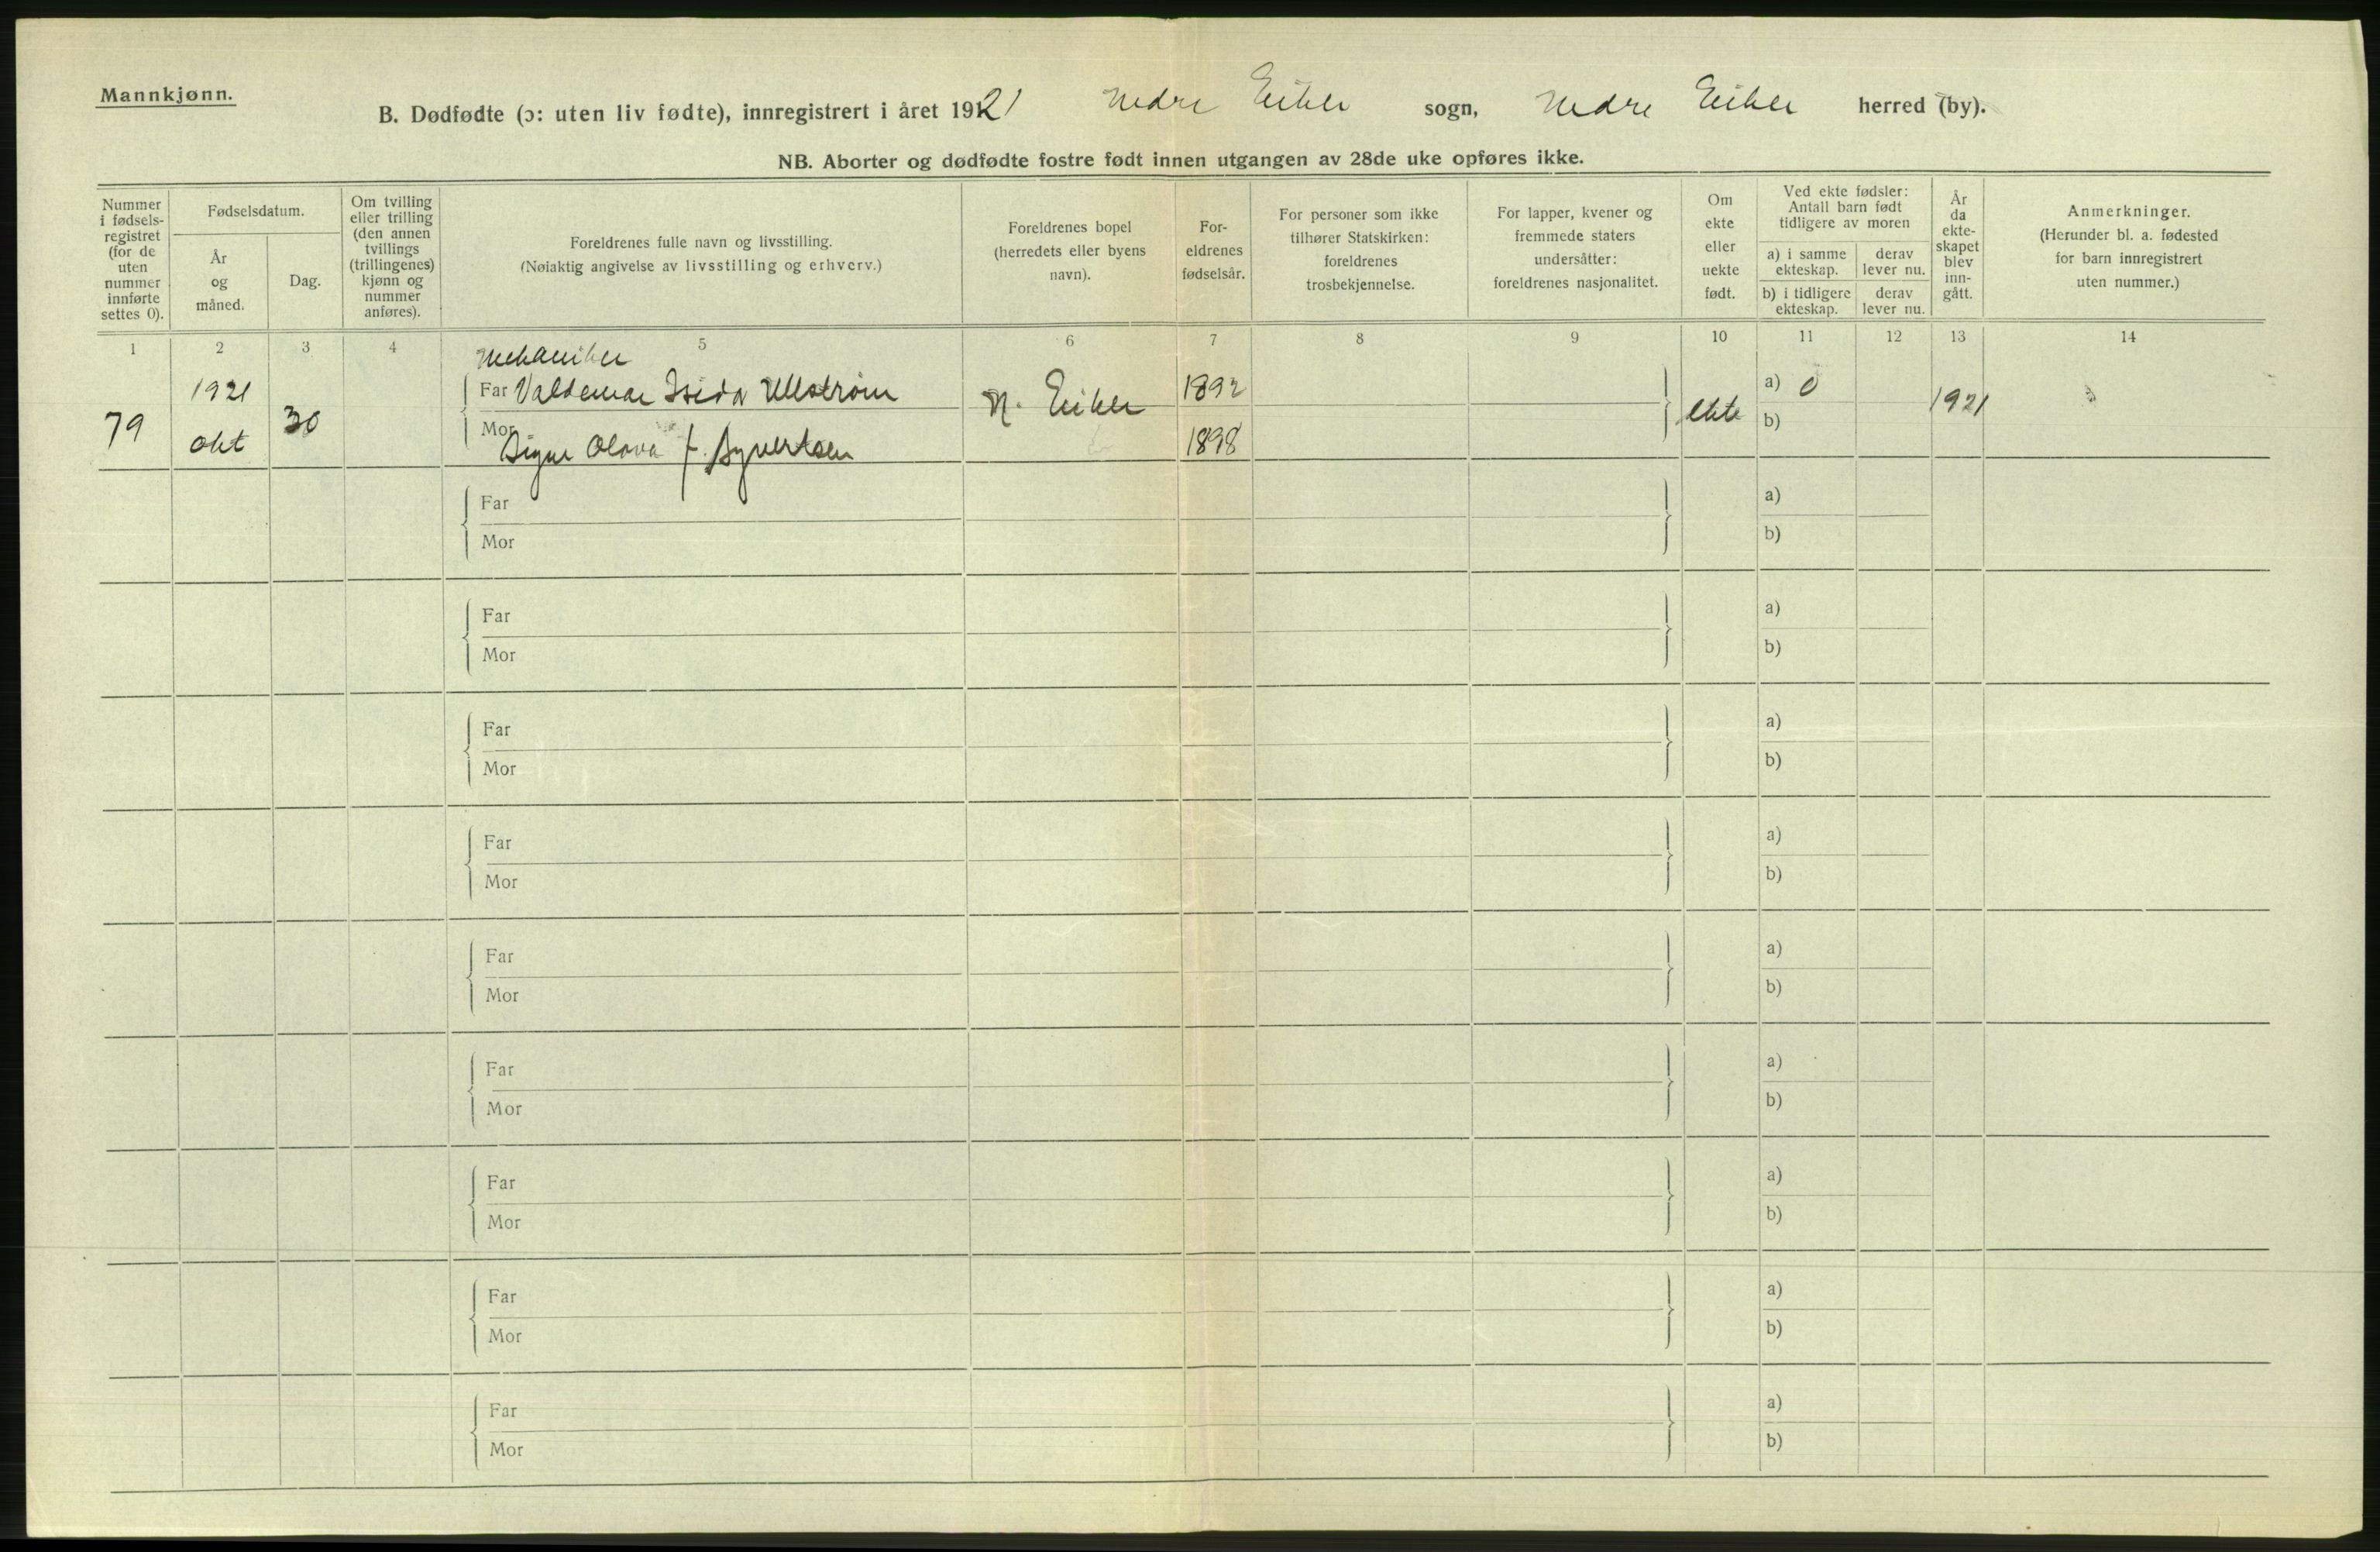 Mannkjønn.
B. Dødfødte (ɔ: uten liv fødte), innregistrert i året 1921 Nedre Eiker sogn, Nedre Eiker herred (by).
NB. Aborter og dødfødte fostre født innen utgangen av 28de uke opføres ikke.
Nummer i fødsels-registret (for de uten nummer innførte settes 0).
Fødselsdatum.
År og måned.
Dag.
Om tvilling eller trilling (den annen tvillings (trillingenes) kjønn og nummer anføres).
Foreldrenes fulle navn og livsstilling.
(Nøiaktig angivelse av livsstilling og erhverv.)
Foreldrenes bopel (herredets eller byens navn).
For-eldrenes fødselsår.
For personer som ikke tilhører Statskirken: foreldrenes trosbekjennelse.
For lapper, kvener og fremmede staters undersåtter: foreldrenes nasjonalitet.
Om ekte eller uekte født.
Ved ekte fødsler: Antall barn født tidligere av moren
a) i samme ekteskap. derav lever nu.
b) i tidligere ekteskap. derav lever nu.
År da ekte-skapet blev inn-gått.
Anmerkninger.
(Herunder bl. a. fødested for barn innregistrert uten nummer.)
1 2 3 4 5 6 7 8 9 10 11 12 13 14
Mekaniker
79 1921 okt 30 Far Valdemar Ullstrøm N. Eiker 1892 ekte a) 0 1921
Mor Signe Olava f. Syvertsen 1898 b)
Far a)
Mor b)
Far a)
Mor b)
Far a)
Mor b)
Far a)
Mor b)
Far a)
Mor b)
Far a)
Mor b)
Far a)
Mor b)
Far a)
Mor b)
Far a)
Mor b)